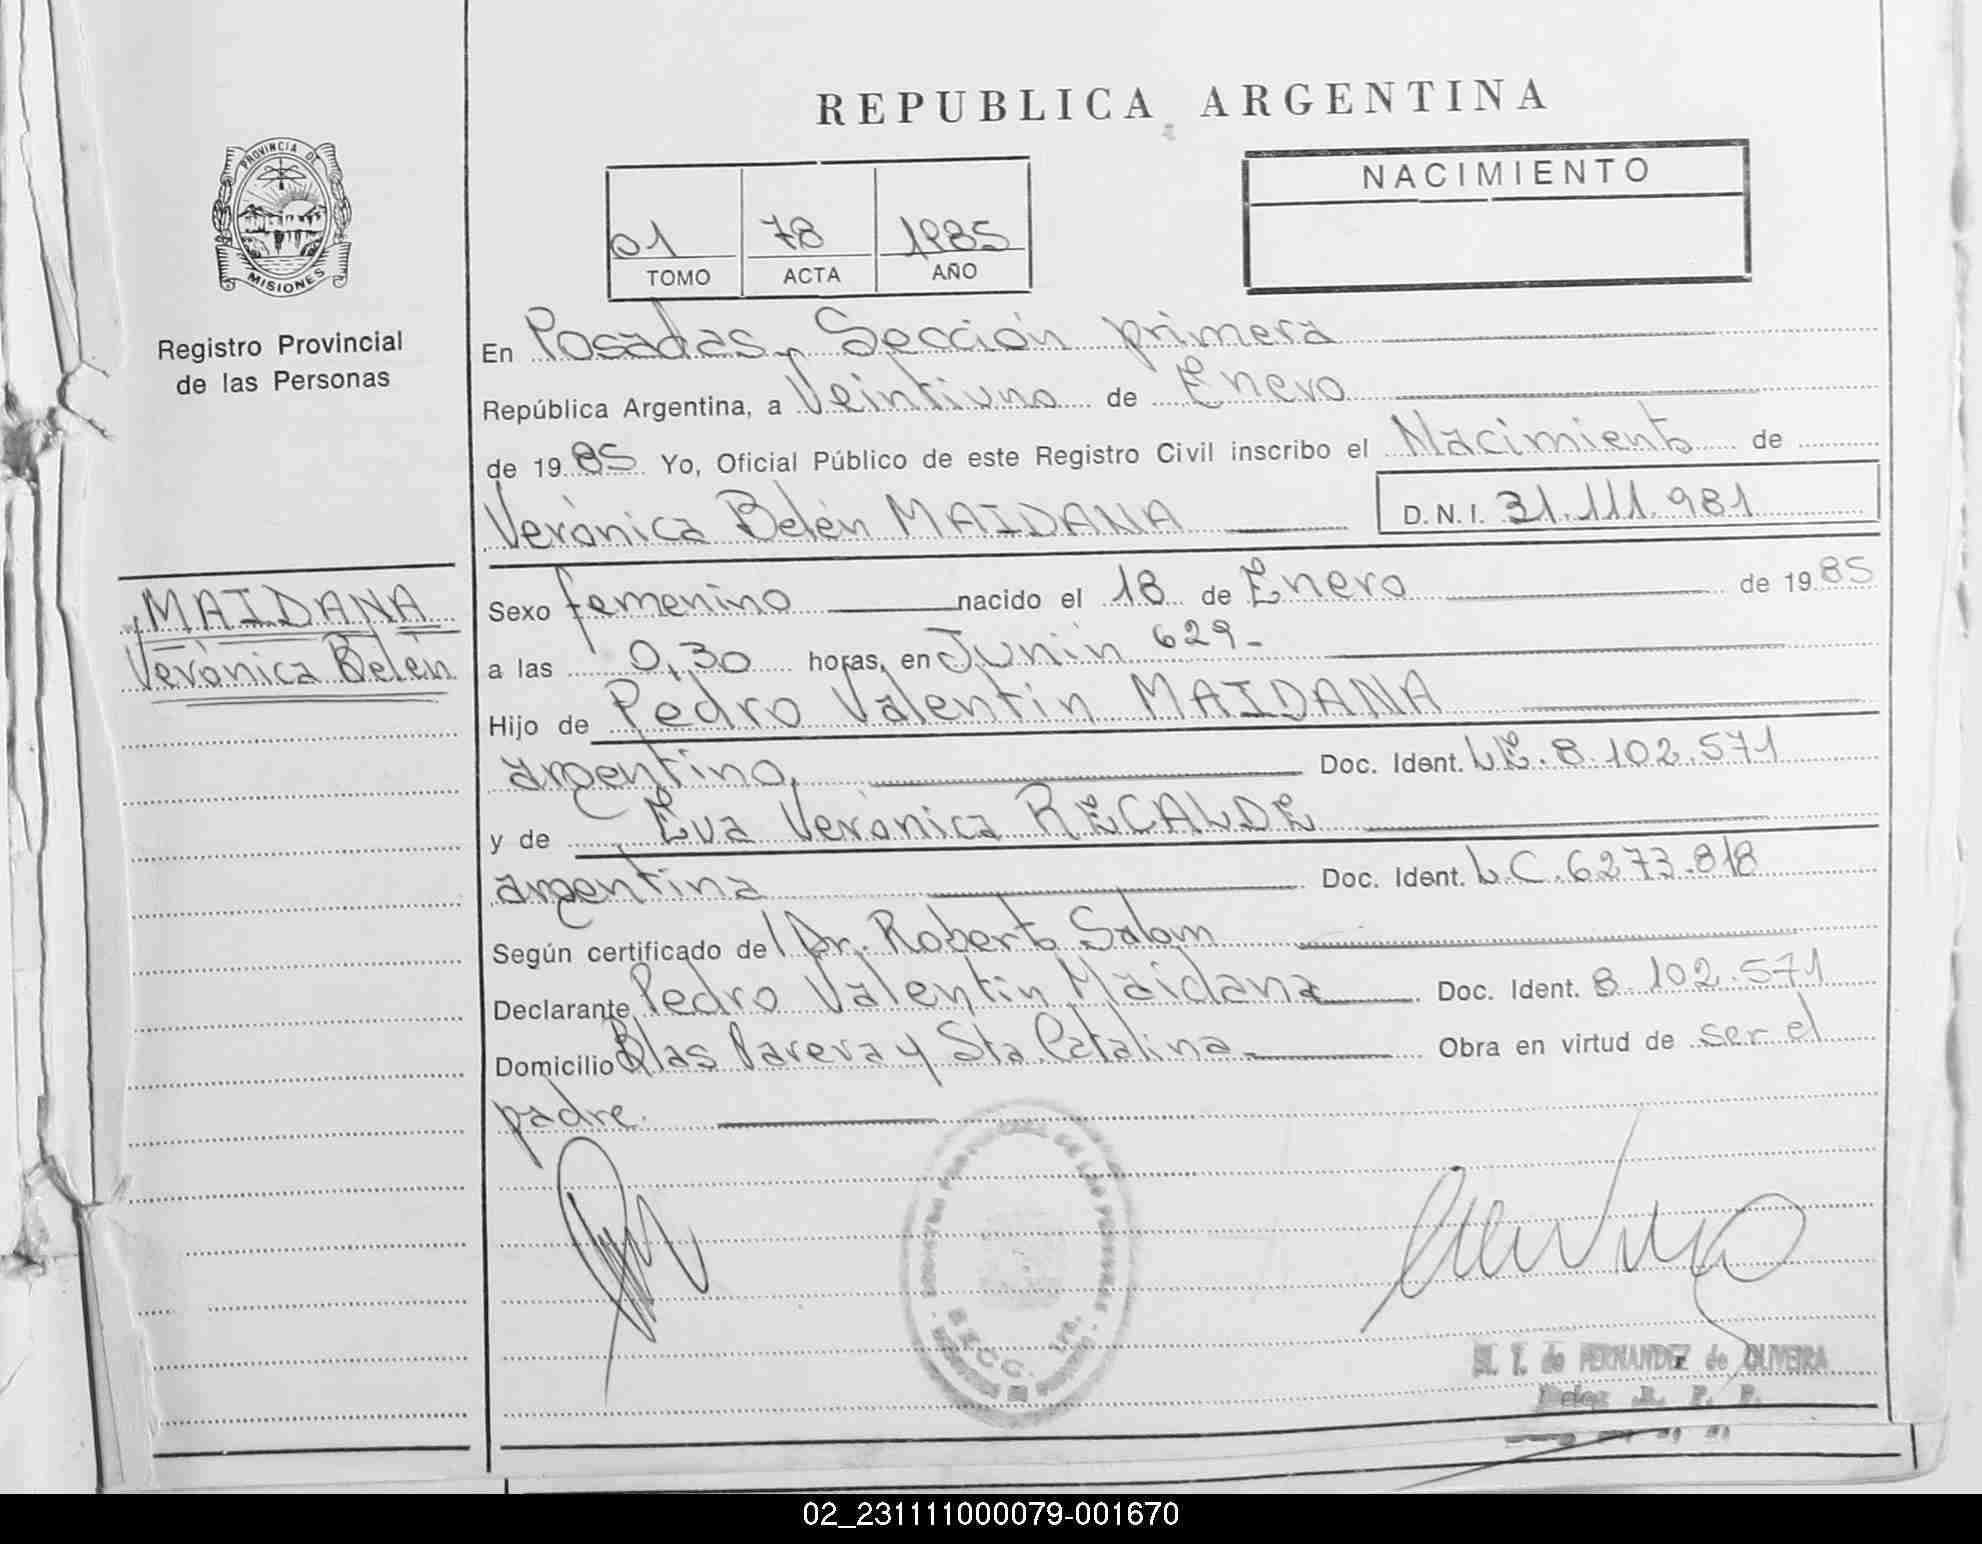 REPUBLICA ARGENTINA
PROVINCIA DE
MISIONES
Registro Provincial
de las Personas
01 78 1985
TOMO ACTA AÑO
NACIMIENTO
En Posadas, Sección primera
República Argentina, a Veintiuno de Enero
de 1985 Yo, Oficial Público de este Registro Civil inscribo el Nacimiento de
Verónica Belén MAIDANA D.N.I. 31.111.981
MAIDANA
Verónica Belén
Sexo femenino nacido el 18 de Enero de 1985
a las 0,30 horas, en Junín 629-
Hijo de Pedro Valentín MAIDANA
argentino, Doc. Ident. LE. 8.102.571
y de Eva Verónica RECALDE
argentina Doc. Ident. LC. 6273.818
Según certificado del Dr. Roberto Salom
Declarante Pedro Valentín Maidana Doc. Ident. 8.102.571
Domicilio Blas Parera y Sta Catalina Obra en virtud de ser el
padre.
DE LAS PERSONAS
SECC. 1ra.
M. T. de FERNANDEZ de OLIVEIRA
Deleg. R. P. P.
02_231111000079-001670